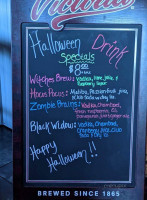 Victoria
Halloween
Drink
Specials
$8.00
Witches Brew: Vodka, lime juice, &
Raspberry liquor
Hocus Pocus: Malibu, Passionfruit juice,
Zombie Brains: Vodka, Chambord,
Black Widow: Vodka, Chambord,
Cranberry juice, Club
Soda &
Happy
Halloween!!
BREWED SINCE 1865